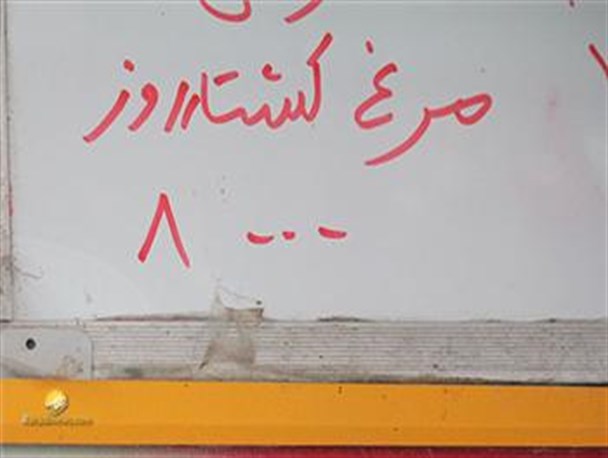 مرغ کشتار روز
۸۰۰۰